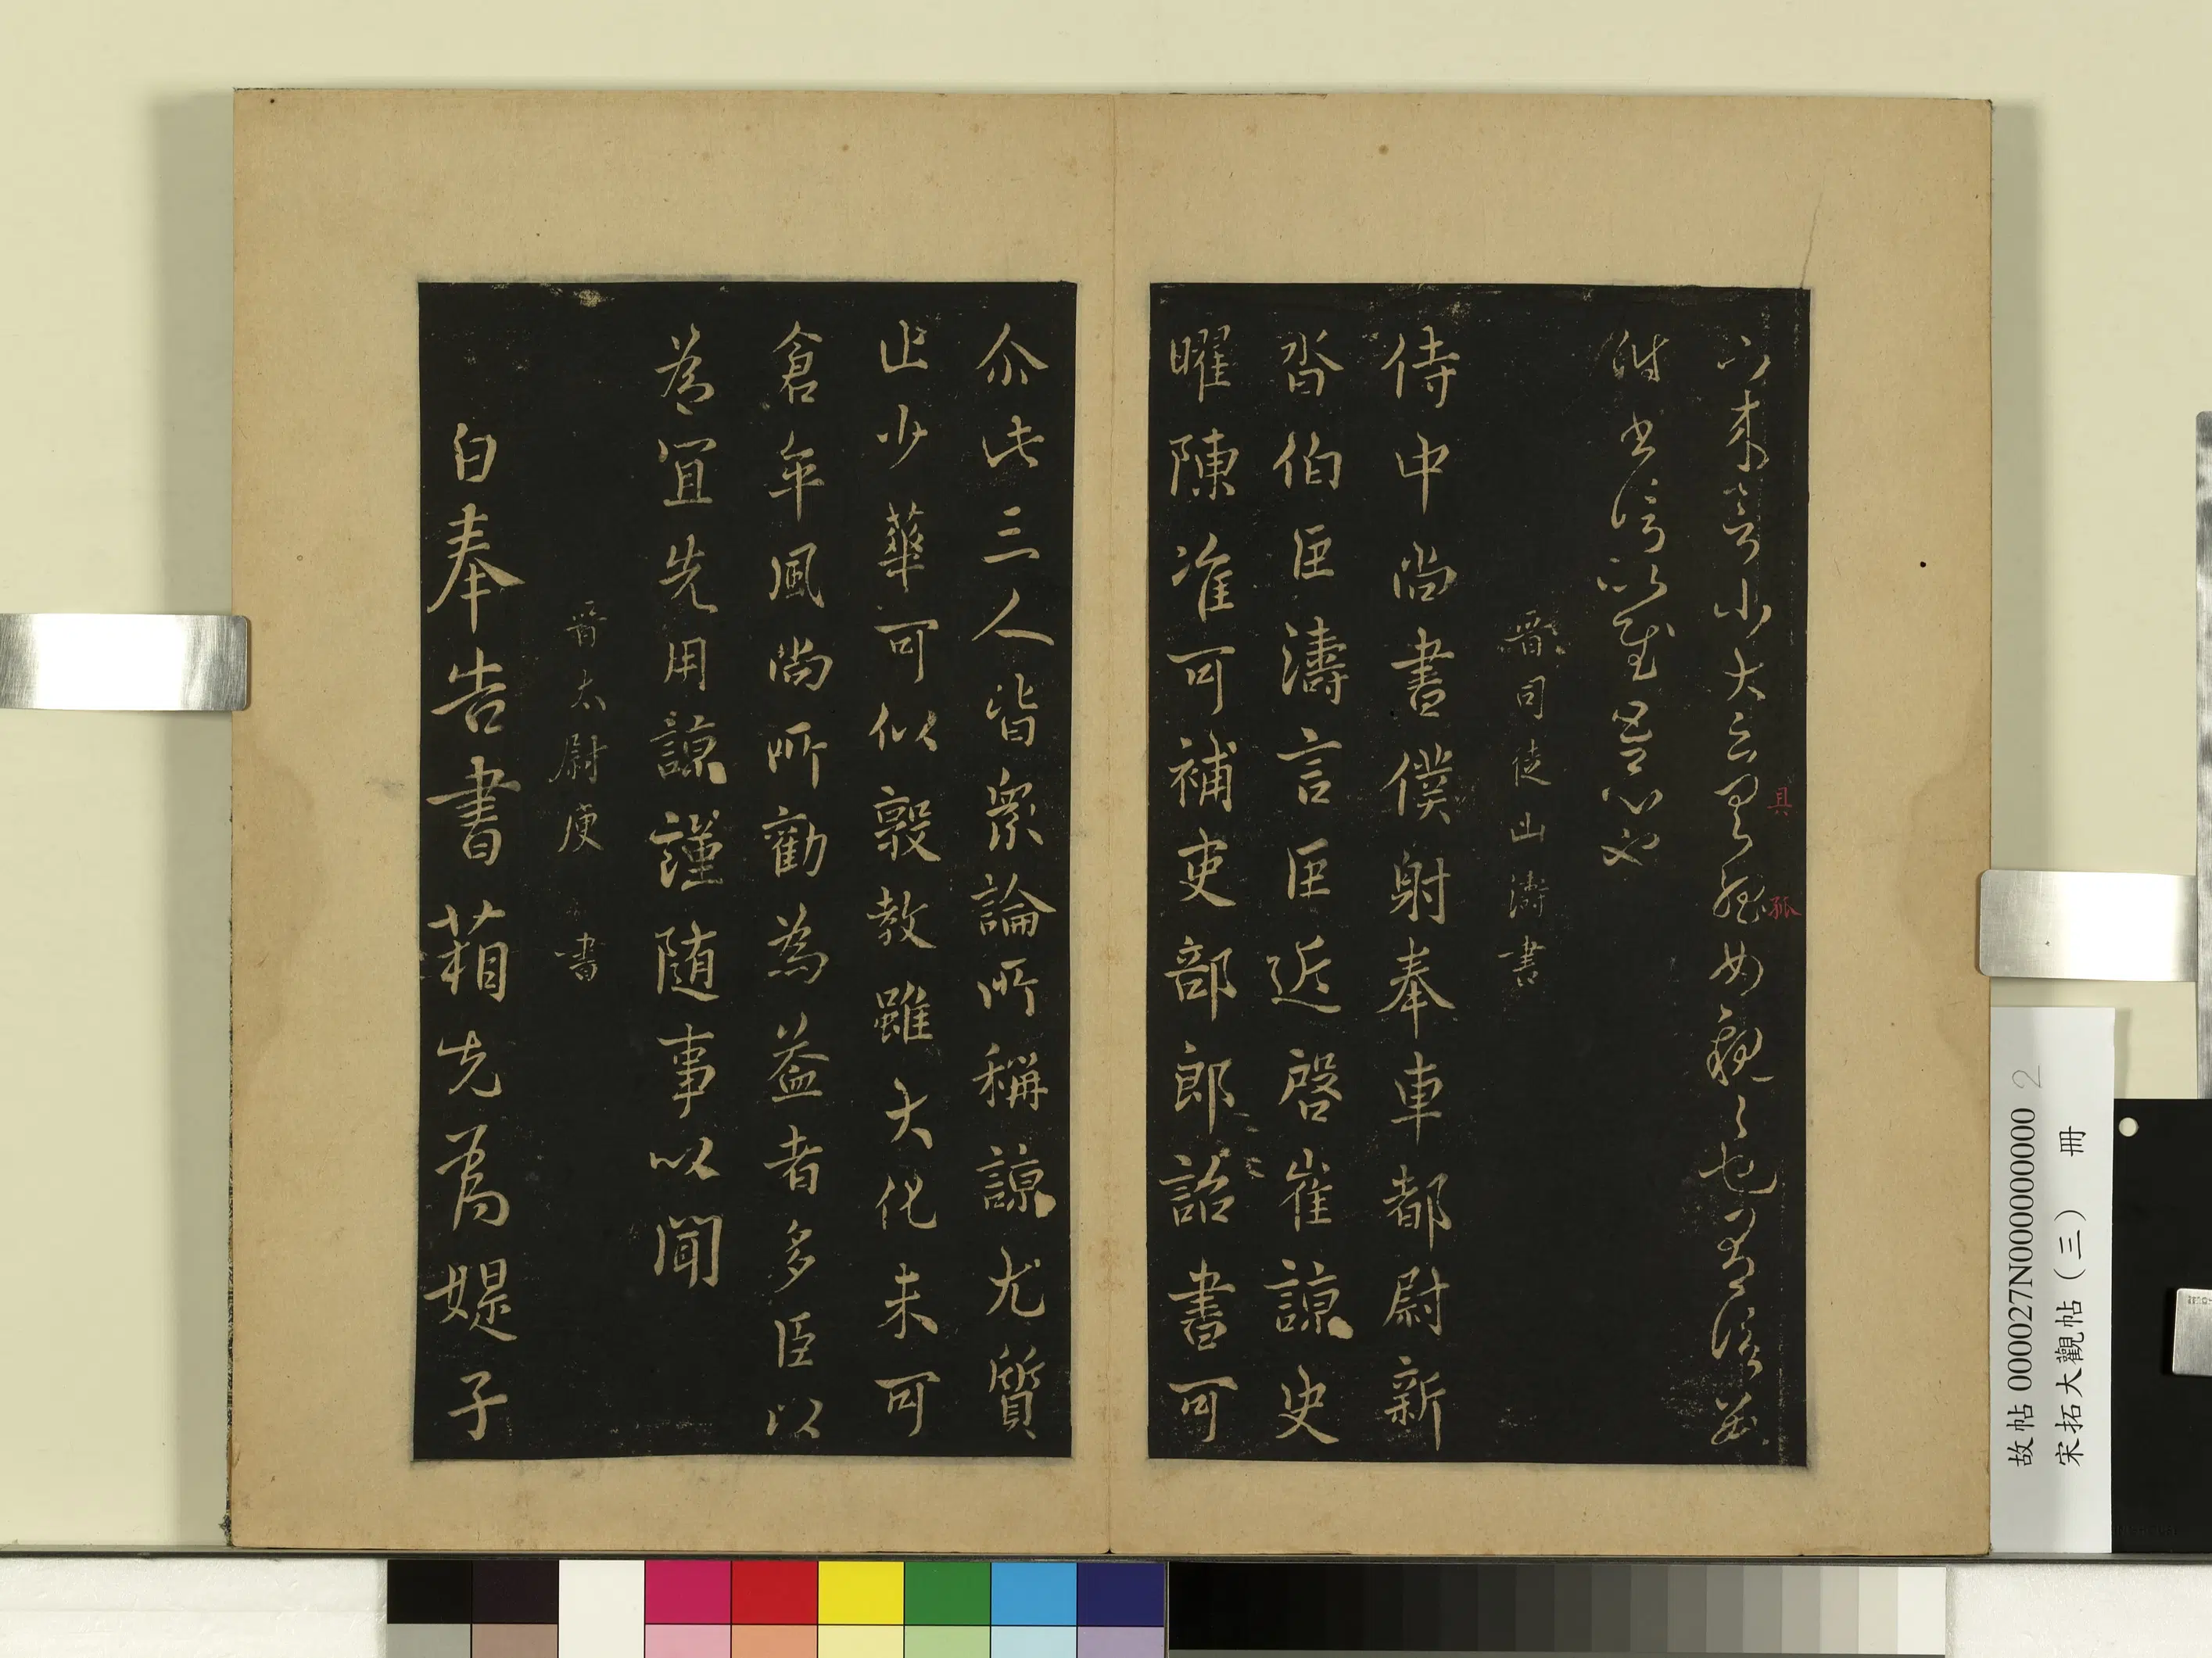 小大
具
孤
附書信以慰吾心也
晉司徒山濤書
侍中尚書僕射奉車都尉新
沓伯臣濤言臣近啓崔諒史
曜陳准可補吏部郎詔書可
尒此三人皆衆論所稱諒尤質
止少華可以敦教雖大化未可
倉卒風尚所勸為益者多臣以
為宜先用諒謹隨事以聞
晉太尉庾 書
白奉告書葙先為媞子
故帖000027N000000000 2
宋拓大觀帖（三） 冊